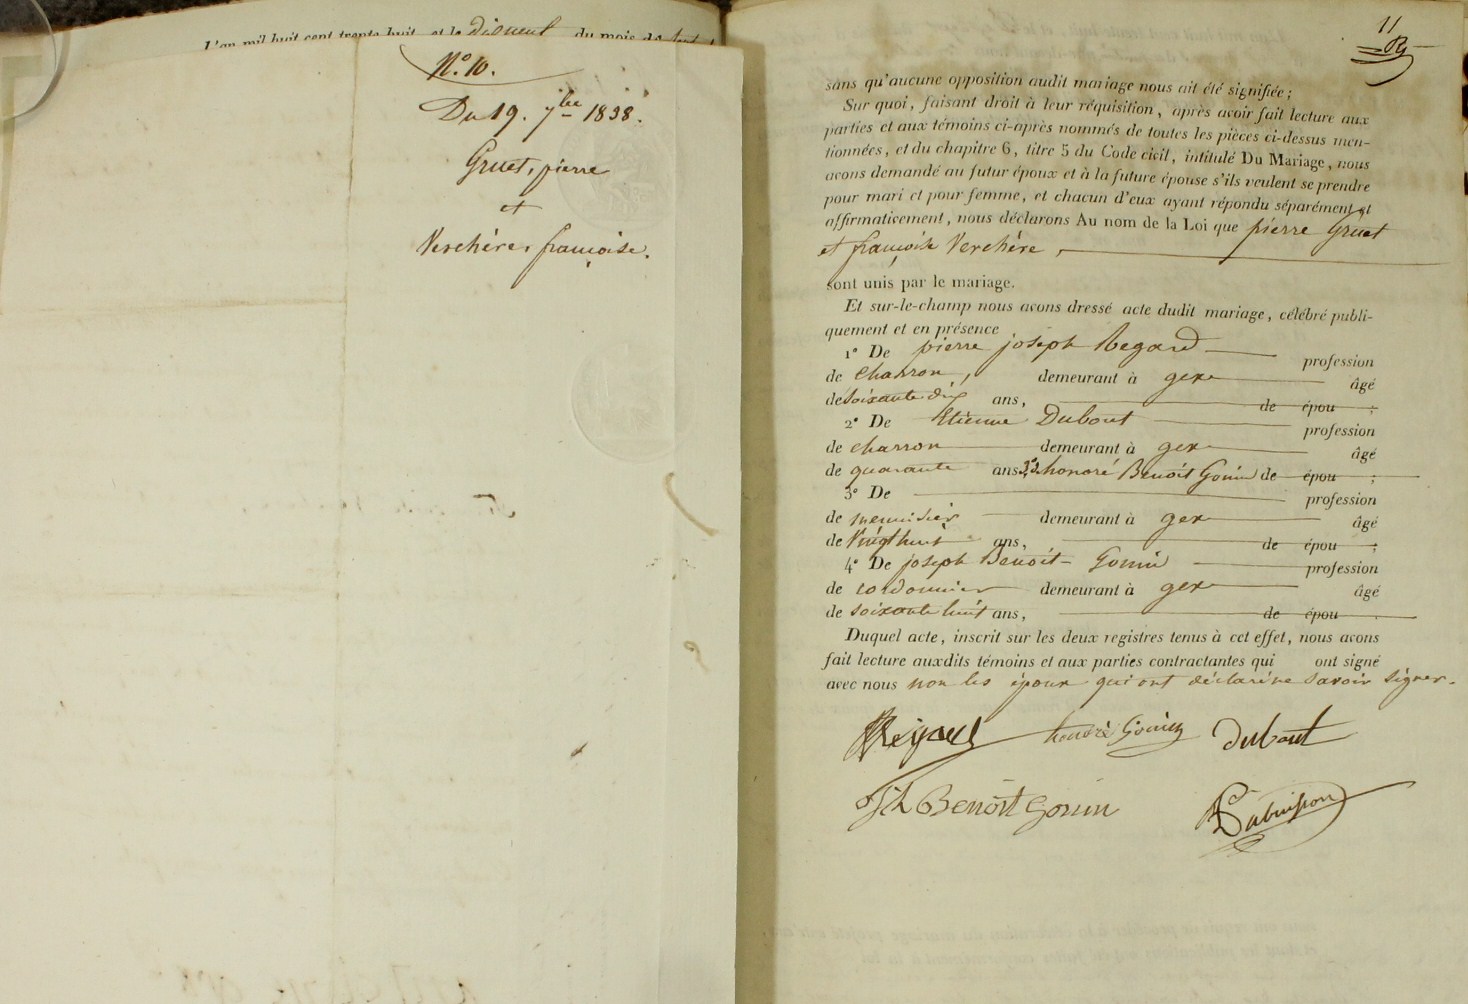 L'an mil huit cent trente huit et le dixneuf du mois de
N.° 10.
Du 19. 7bre 1838.
Gruet, pierre
et
Verchère, françoise.
11
sans qu'aucune opposition audit mariage nous ait été signifiée ;
Sur quoi, faisant droit à leur réquisition, après avoir fait lecture aux
parties et aux témoins ci-après nommés de toutes les pièces ci-dessus men-
tionnées, et du chapitre 6, titre 5 du Code civil, intitulé Du Mariage, nous
avons demandé au futur époux et à la future épouse s'ils veulent se prendre
pour mari et pour femme, et chacun d'eux ayant répondu séparément et
affirmativement, nous déclarons Au nom de la Loi que pierre Gruet
et françoise Verchère,
sont unis par le mariage.
Et sur-le-champ nous avons dressé acte dudit mariage, célébré publi-
quement et en présence
1° De pierre joseph Regard profession
de charron, demeurant à gex âgé
de soixante dix ans, de épou ;
2° De Etienne Dubout profession
de charron demeurant à gex âgé
de quarante ans, 3° honoré Benoît Gonin de épou ;
3° De profession
de menuisier demeurant à gex âgé
de vingt huit ans, de épou ;
4° De joseph Benoît Gonin profession
de cordonnier demeurant à gex âgé
de soixante huit ans, de épou .
Duquel acte, inscrit sur les deux registres tenus à cet effet, nous avons
fait lecture auxdits témoins et aux parties contractantes qui ont signé
avec nous non les époux qui ont déclaré ne savoir signer.
Regard honoré Gonin Dubout
Jh Benoît Gonin